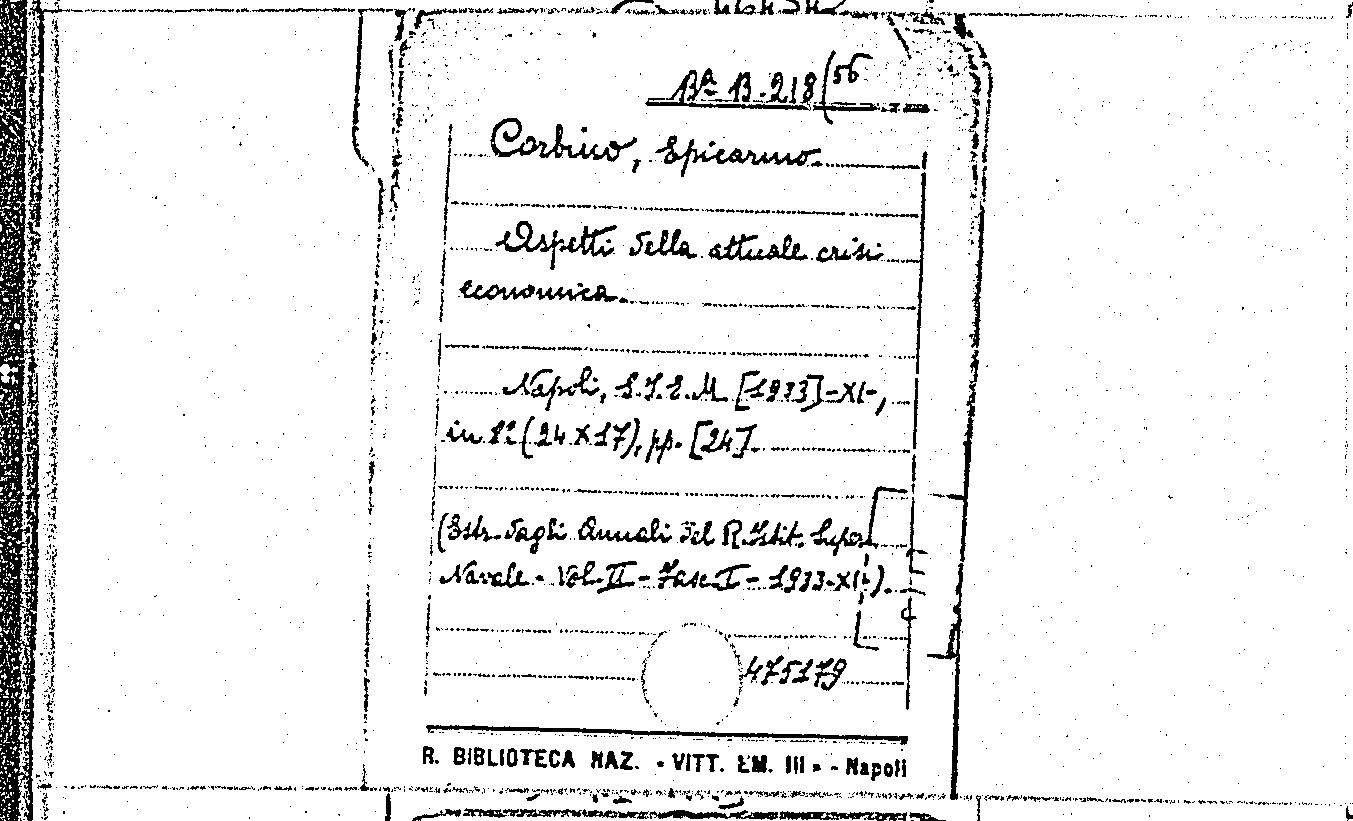 Bª B.218(56
Corbino, Epicarmo.
Aspetti della attuale crisi
economica.
Napoli, S.I.E.M. [1933]-XI-,
in 8º (24X17), pp. [24].
(Estr. dagli Annali del R. Istit. Super.
Navale - Vol. II - Fasc. I - 1933-XI-).
475179
R. BIBLIOTECA NAZ. « VITT. EM. III » - Napoli